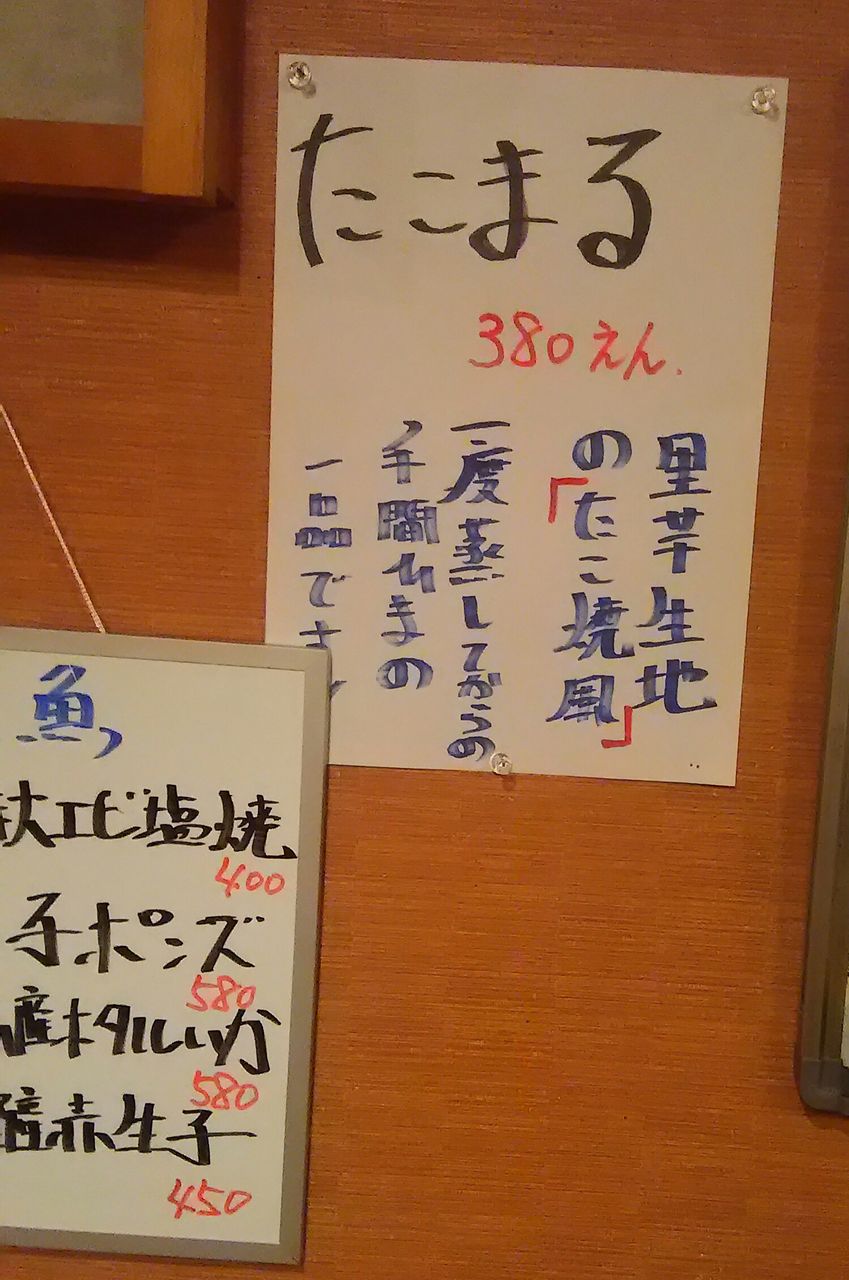 たこまる
380えん.
里芋生地
の「たこ焼風」
一度蒸してからの
手間ひまの
一品です
魚
エビ塩焼
400
子ポンズ
580
産ホタルいか
580
赤生子
450